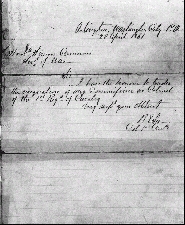 Arlington, Washington City P.O.
20 April 1861
Honble Simon Cameron
Secy of War
Sir
I have the honour to tender
the resignation of my Commission as Colonel
of the 1st Regt of Cavalry
Very resply your Obt Servt
R E Lee
Col 1st Cavly